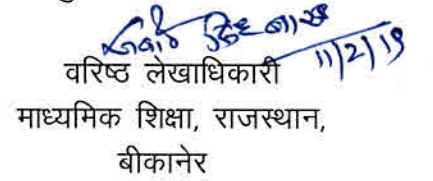 11/2/19
वरिष्ठ लेखाधिकारी
माध्यमिक शिक्षा, राजस्थान,
बीकानेर